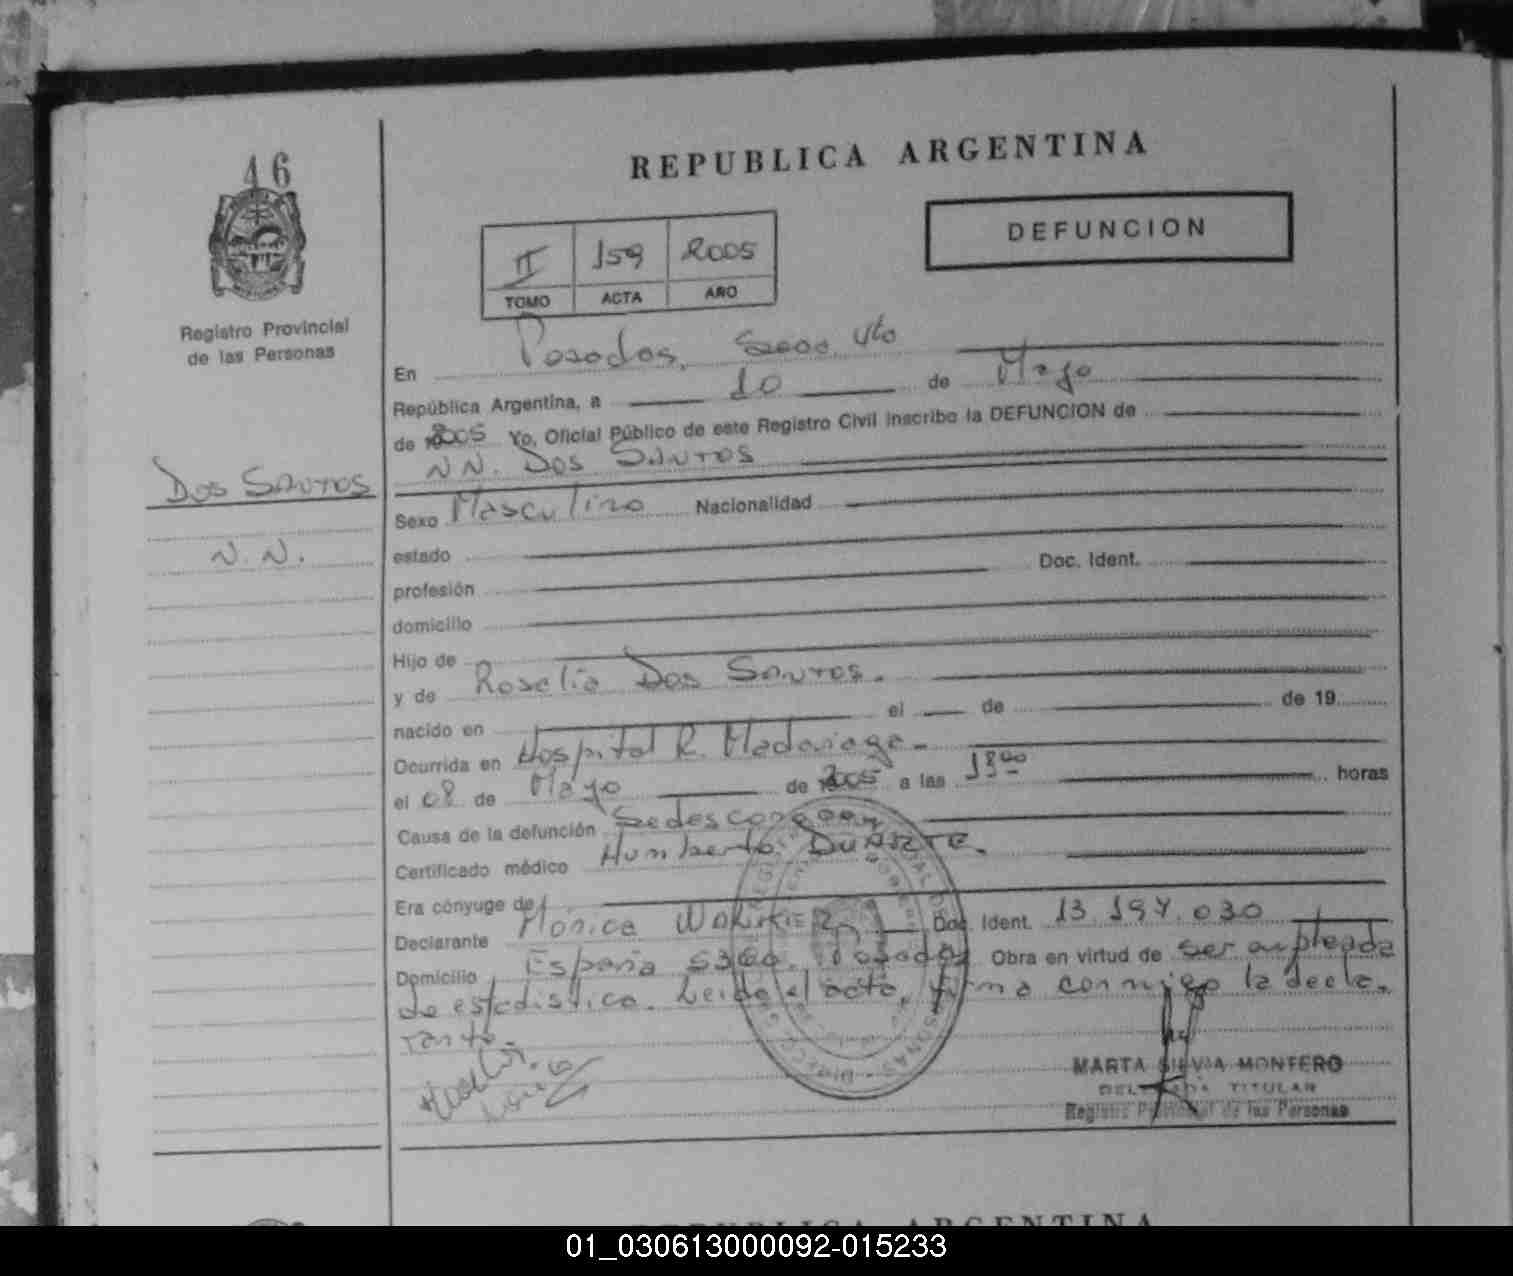 46
REPUBLICA ARGENTINA
DEFUNCION
II 159 2005
TOMO ACTA AÑO
Registro Provincial
de las Personas
En Posadas, Secc. 4to
República Argentina, a 10 de Mayo
de 2005 Yo, Oficial Público de este Registro Civil inscribo la DEFUNCION de
NN. Dos Santos
Dos Santos
N.N.
Sexo Masculino Nacionalidad
estado
profesión Doc. Ident.
domicilio
Hijo de
y de Roselia Dos Santos.
nacido en el de de 19
Ocurrida en Hospital R. Madariaga-
el 08 de Mayo de 2005 a las horas
Causa de la defunción Se desconoce
Certificado médico Humberto Duarte.
Era cónyuge de
Declarante Mónica Doc. Ident. 13.197.030
Domicilio España 5360. Posadas Obra en virtud de ser empleada
de estadistica. Leida el acta, firma conmigo la decla-
rante.
MARTA SILVIA MONTERO
DELEGADA TITULAR
Registro Provincial de las Personas
REPUBLICA ARGENTINA
01_030613000092-015233